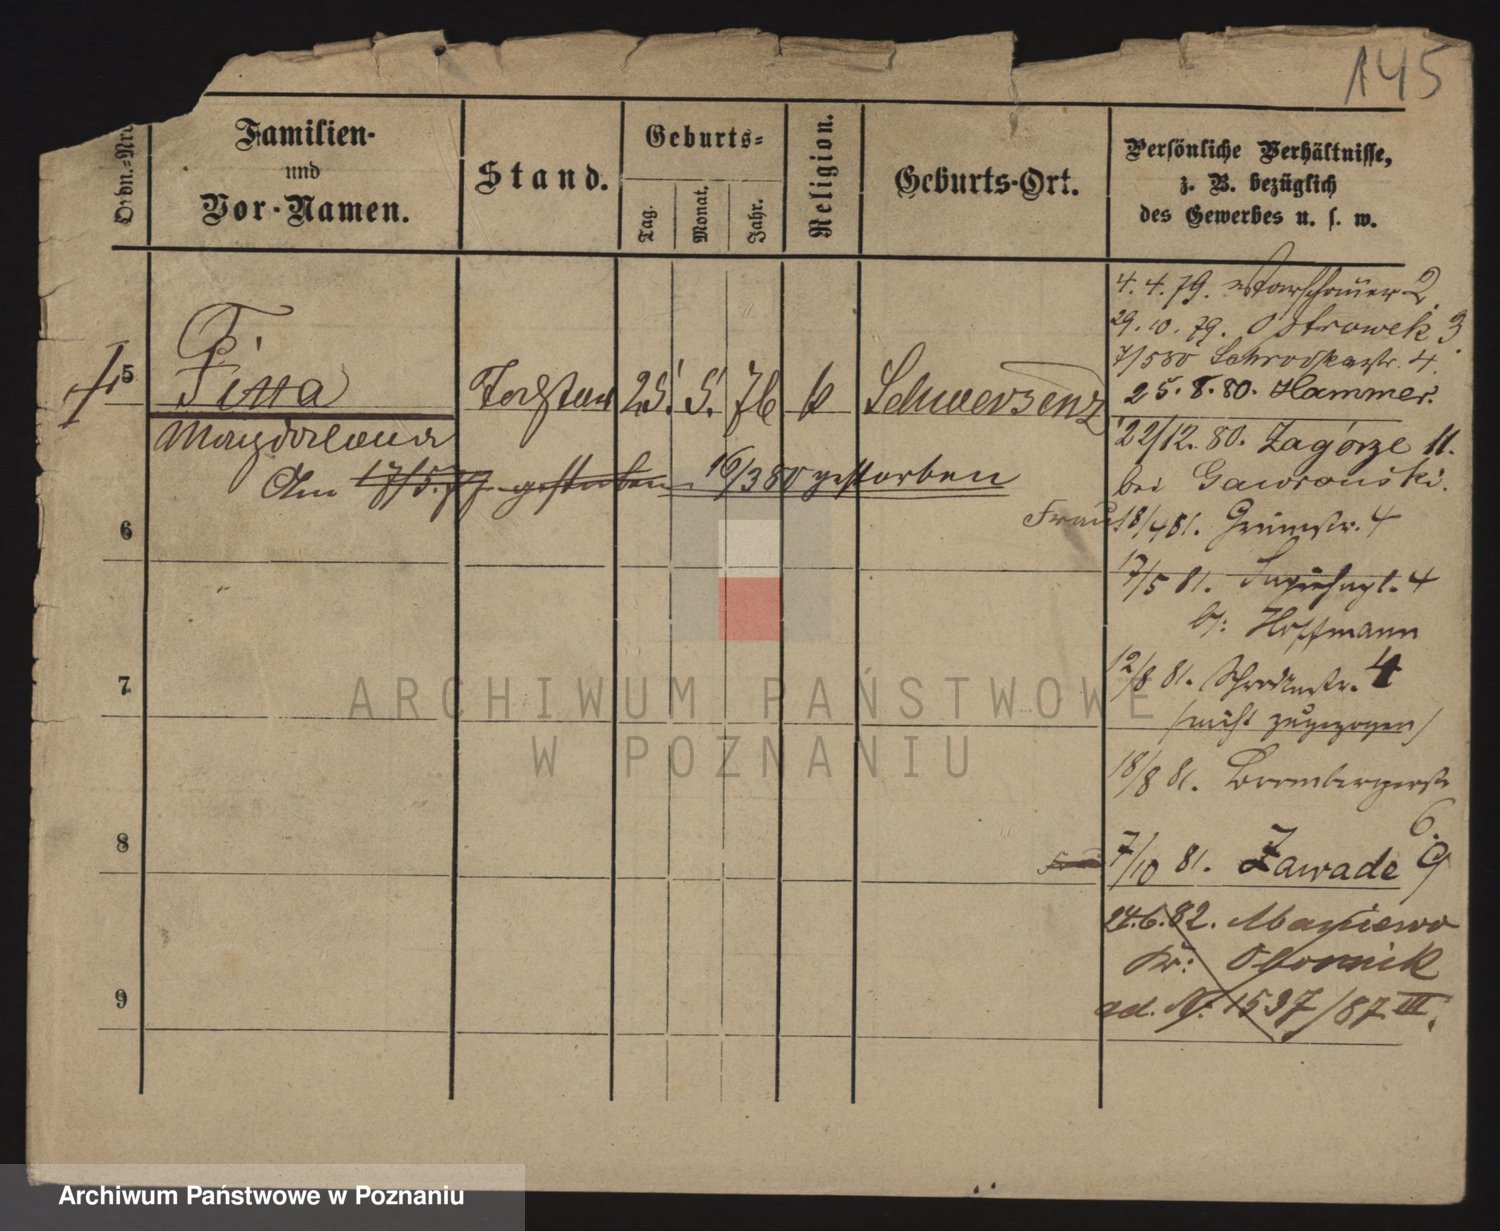 145
Ordn.-Nro
Familien-
und
Vor-Namen.
Stand.
Geburts-
Tag.
Monat.
Jahr.
Religion.
Geburts-Ort.
Persönliche Verhältnisse,
z. B. bezüglich
des Gewerbes u. s. w.
5
Tochter 25. 5. 76 k Schwersenz
Magdalena
Am 17/5.79 gestorben 16/3 80 gestorben
6
7
8
9
4. 4. 79. Warschauer 2.
29. 10. 79. Ostrowek 3.
7/5 80 Schrodkastr. 4.
25. 8. 80. Hammer.
22/12. 80. Zagorze 11.
bei Gawronski.
Frau 18/4 81. Grünestr. 4
17/5 81. 4
b: Hoffmann
12/8 81. 4
/nicht zugezogen/
18/8 81. Brombergerstr
6.
7/10 81. Zawade 9
24.6.82.
Kr: Obornik
ad. N: 1537/87 III.
ARCHIWUM PAŃSTWOWE
W POZNANIU
Archiwum Państwowe w Poznaniu